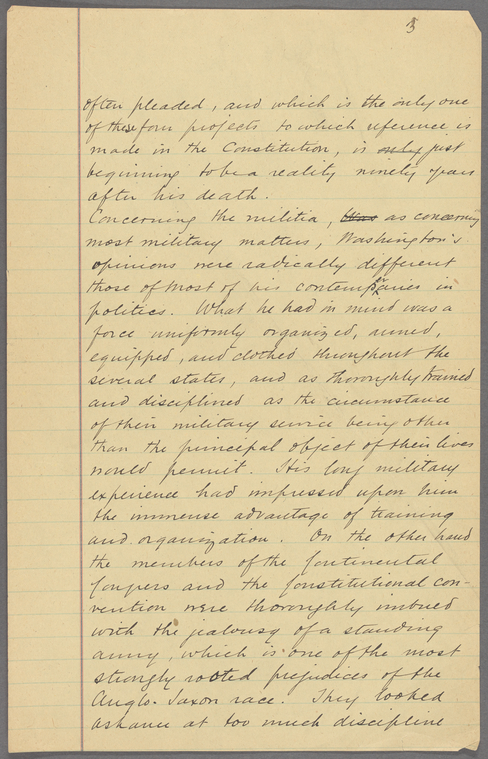 3
often pleaded, and which is the only one
of these four projects to which reference is
made in the Constitution, is only just
beginning to be a reality ninety years
after his death.
Concerning the militia, Was as concerning
most military matters, Washington's
opinions were radically different
those of most of his contemporaries in
politics. What he had in mind was a
force uniformly organized, armed,
equipped, and clothed throughout the
several states, and as thoroughly trained
and disciplined as the circumstance
of their military service being other
than the principal object of their lives
would permit. His long military
experience had impressed upon him
the immense advantage of training
and organization. On the other hand
the members of the Continental
Congress and the Constitutional con-
vention were thoroughly imbued
with the jealousy of a standing
army, which is one of the most
strongly rooted prejudices of the
Anglo-Saxon race. They looked
askance at too much discipline